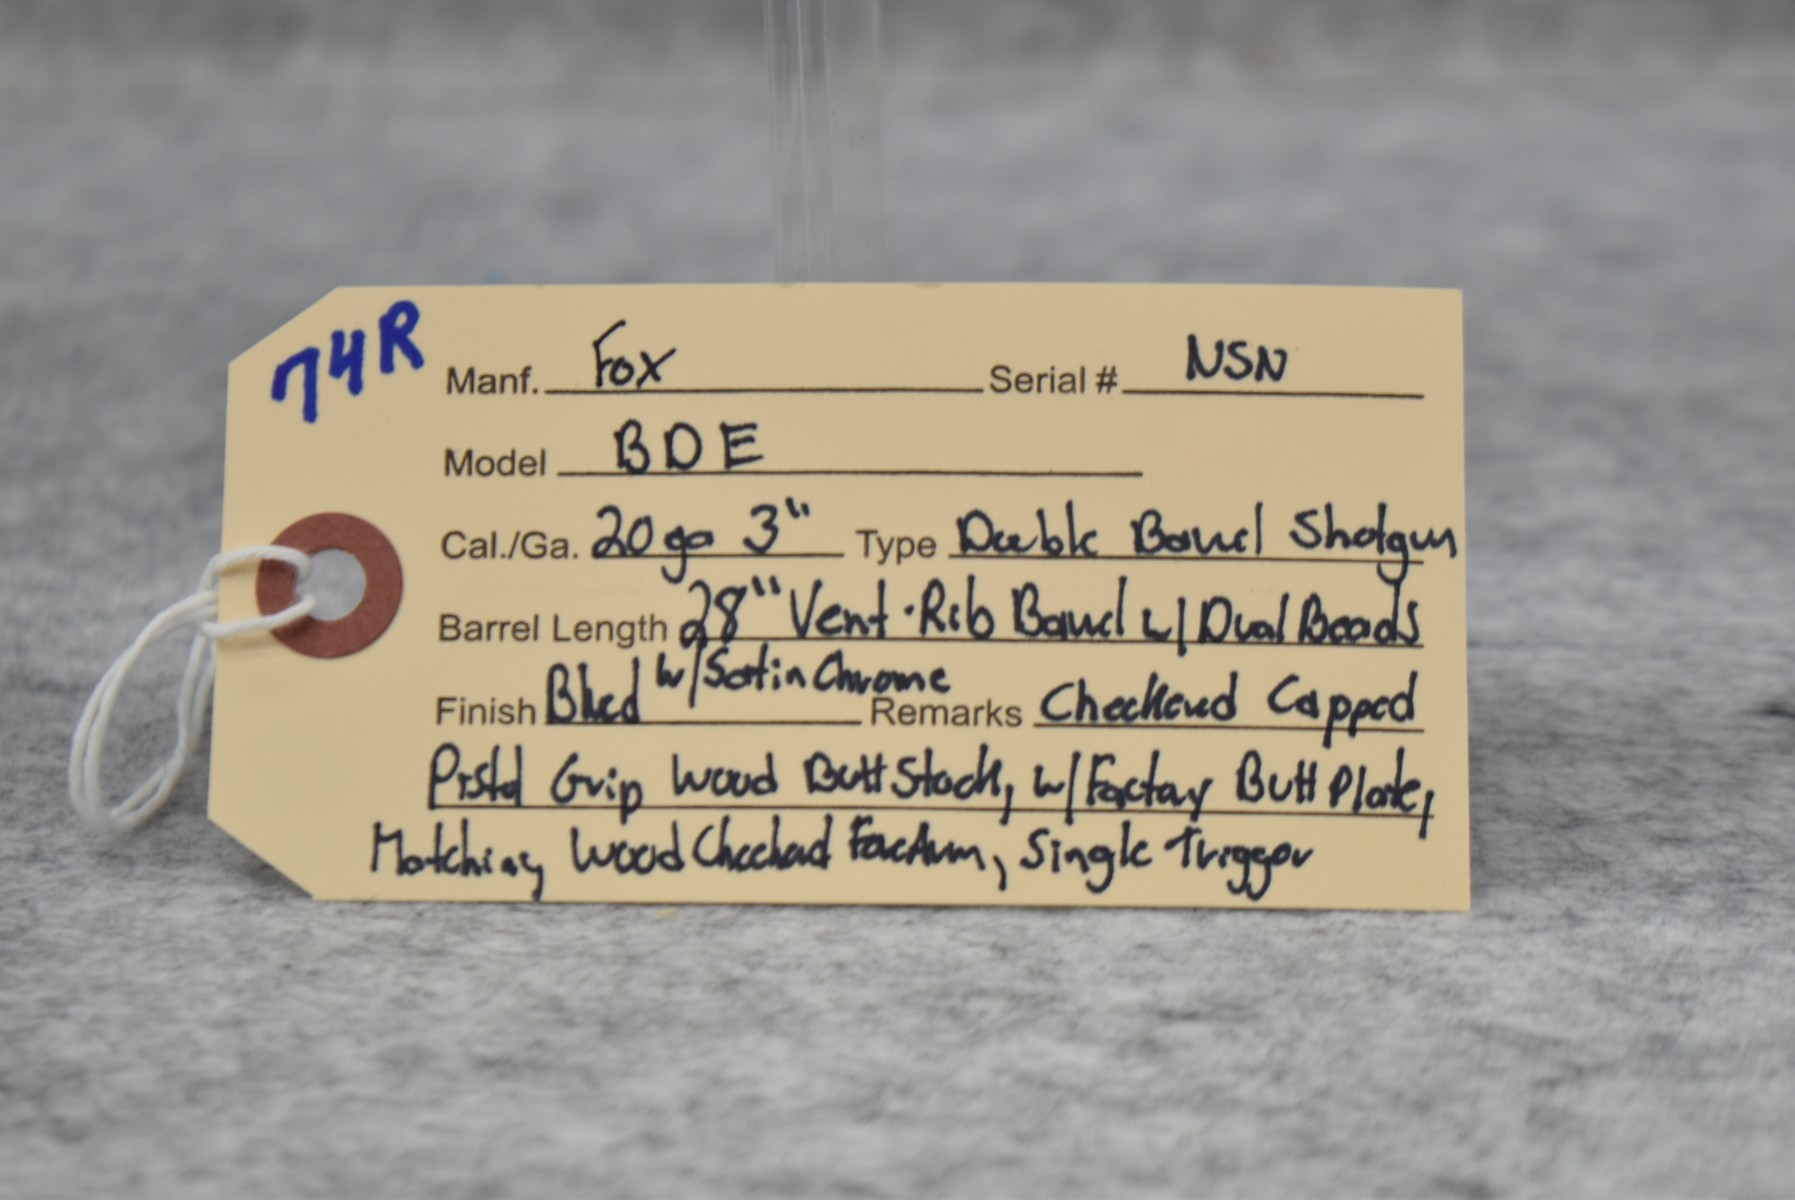 74R
Manf. Fox Serial # NSN
Model BDE
Cal./Ga. 20ga 3" Type Double Barrel Shotgun
Barrel Length 28" Vent-Rib Barrel w/ Dual Beads
Finish Blued w/ Satin Chrome Remarks Checkered Capped
Pistol Grip Wood Butt Stock, w/ Factory Butt Plate,
Matching Wood Checkered Forearm, Single Trigger